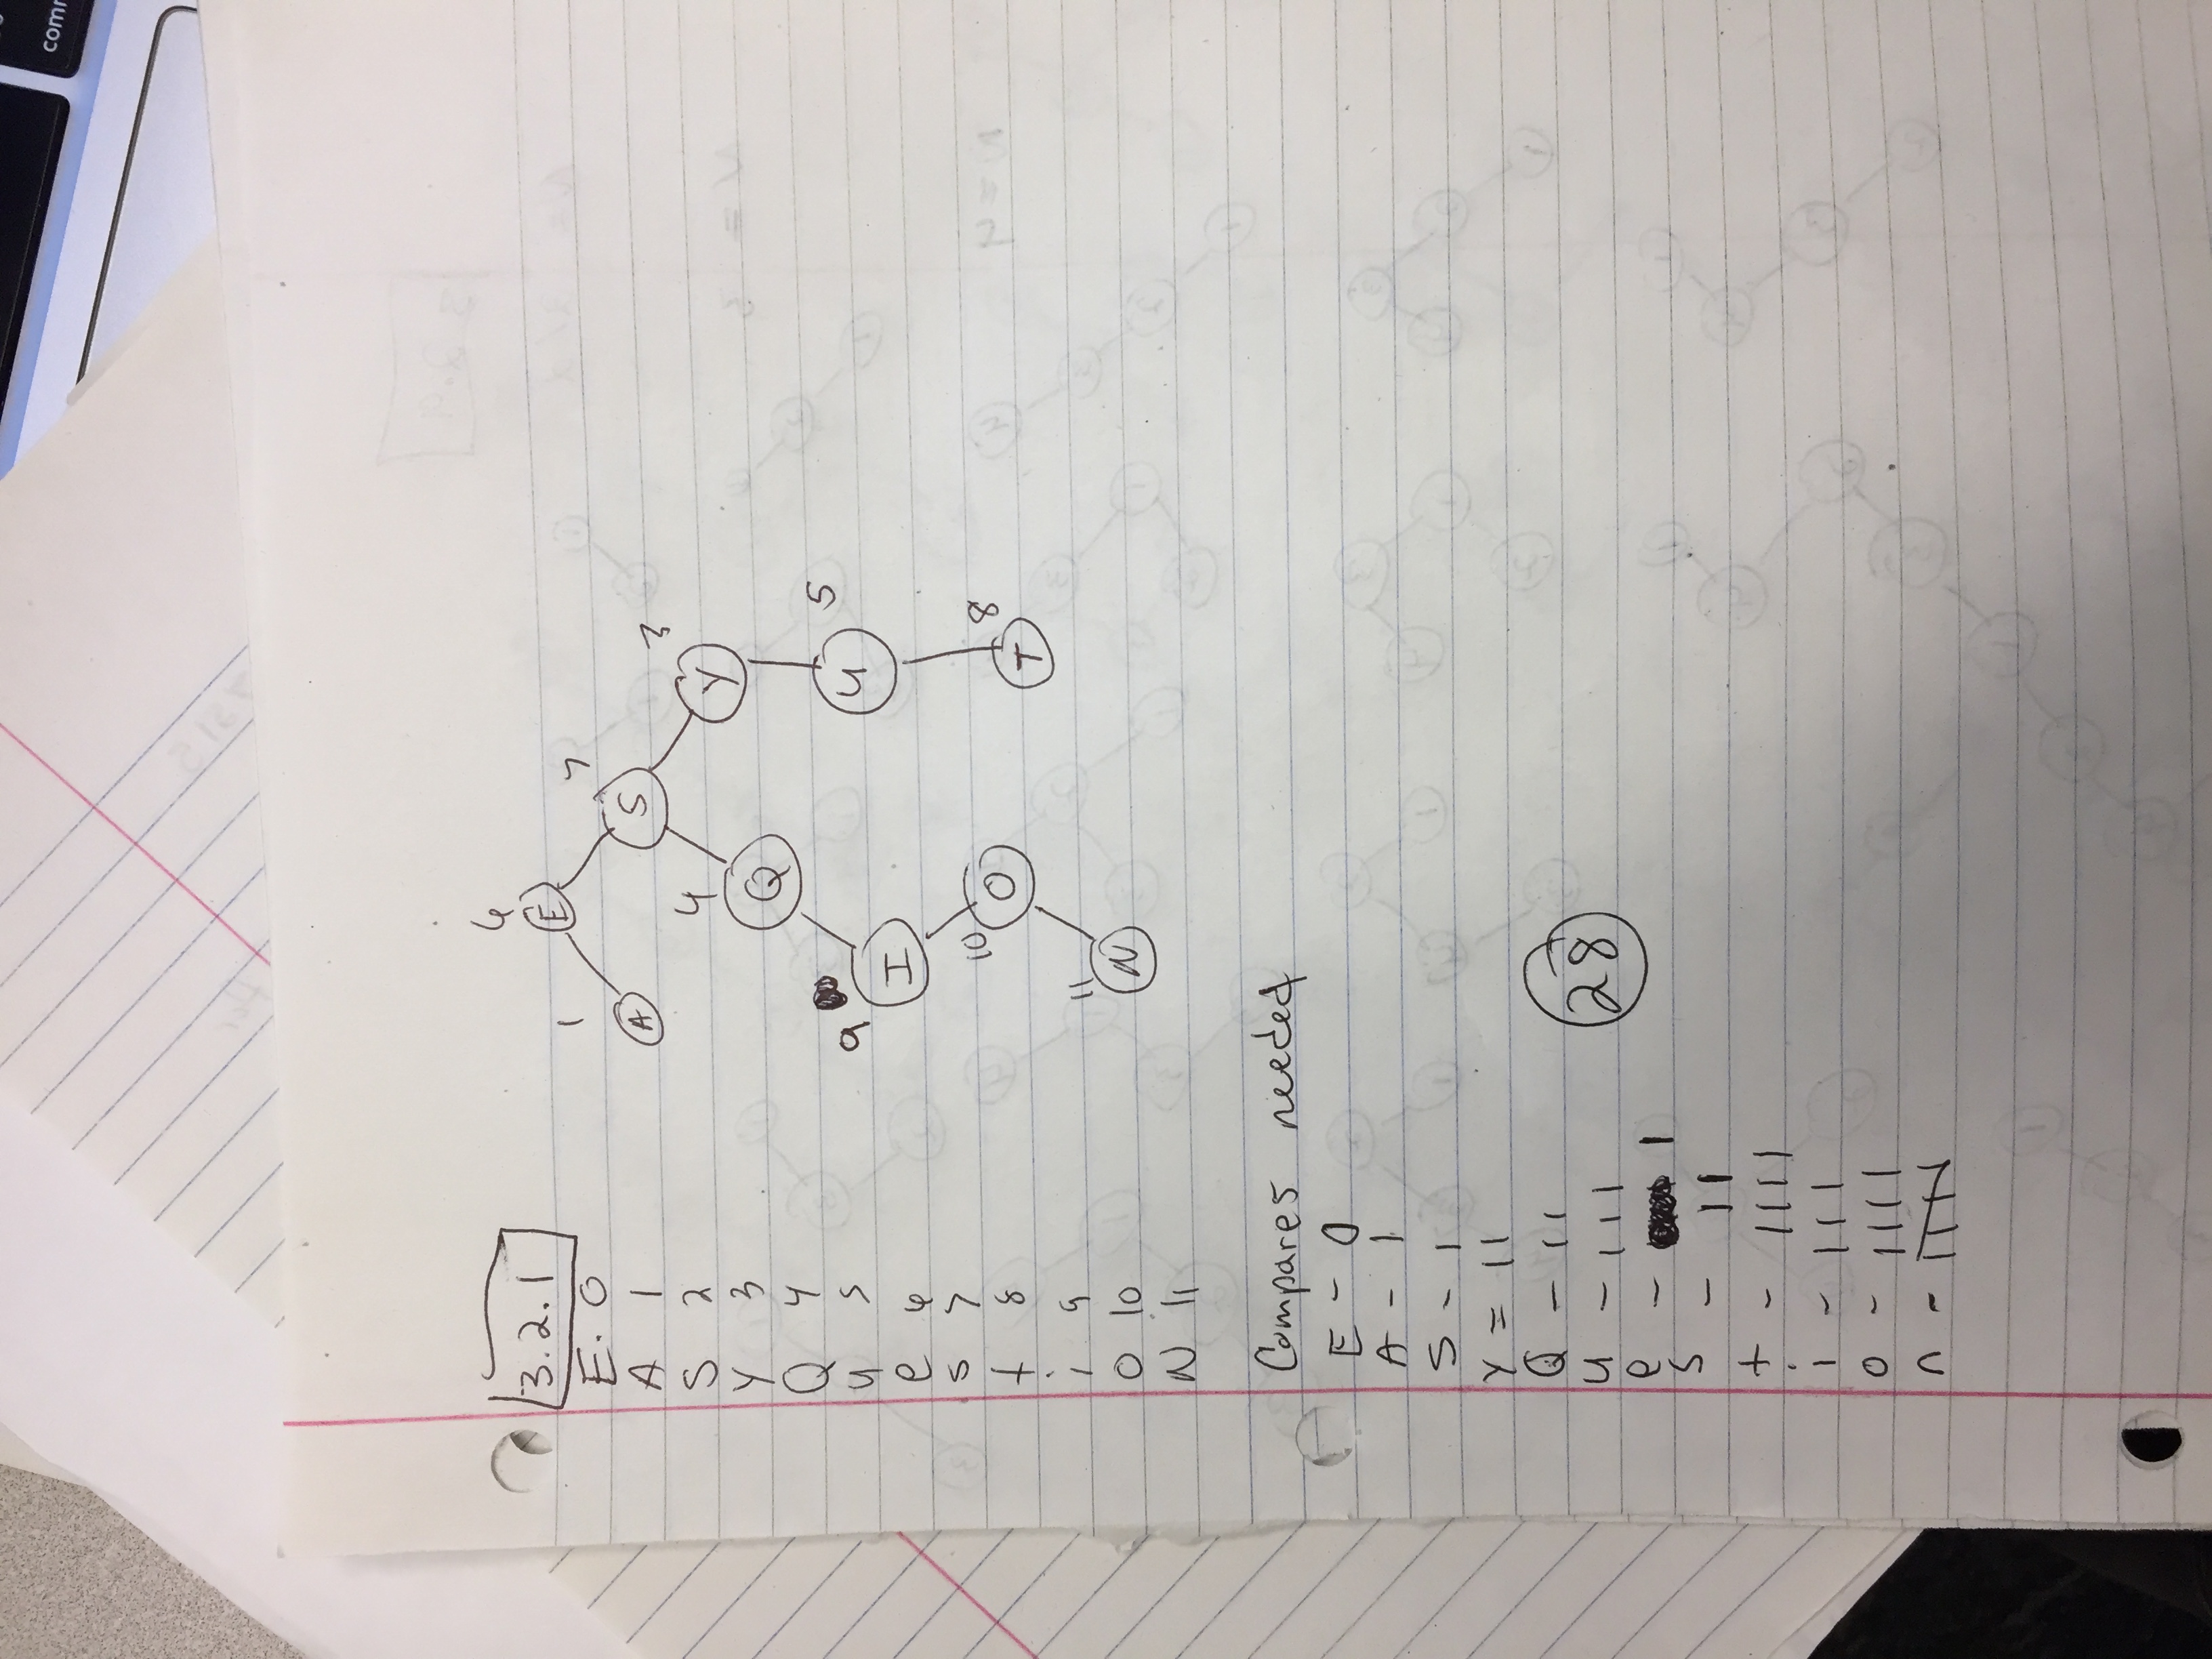 comm
3.2.1
E. 0
A 1
S 2
Y 3
Q 4
u 5
e 6
s 7
t 8
i 9
O 10
N 11
6
E
1
7
A
S
3
4
Y
Q
5
9
U
I
10
8
O
T
11
N
Compares needed
E - 0
A - 1
S - 1
Y = 11
Q - 11
U - 111
e - 1
S - 11
t - 1111
i - 111
o - 1111
n - 
28